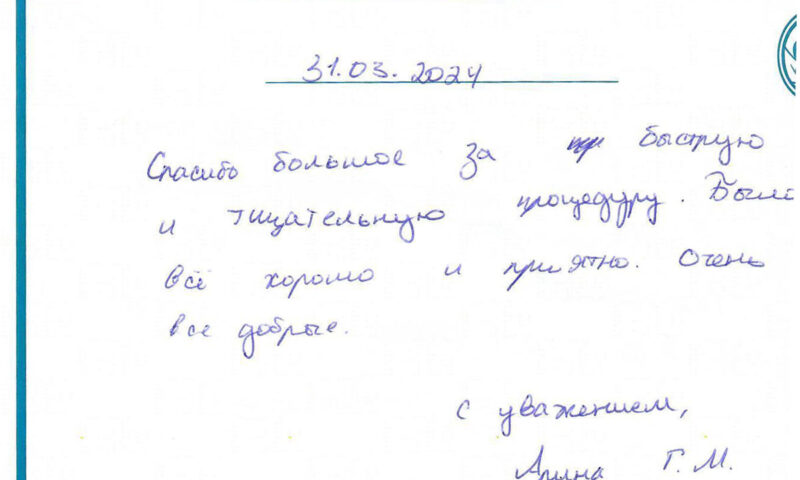 31.03.2024
Спасибо большое за быструю
и тщательную процедуру. Было
всё хорошо и приятно. Очень
все добрые.
с уважением,
Г. М.